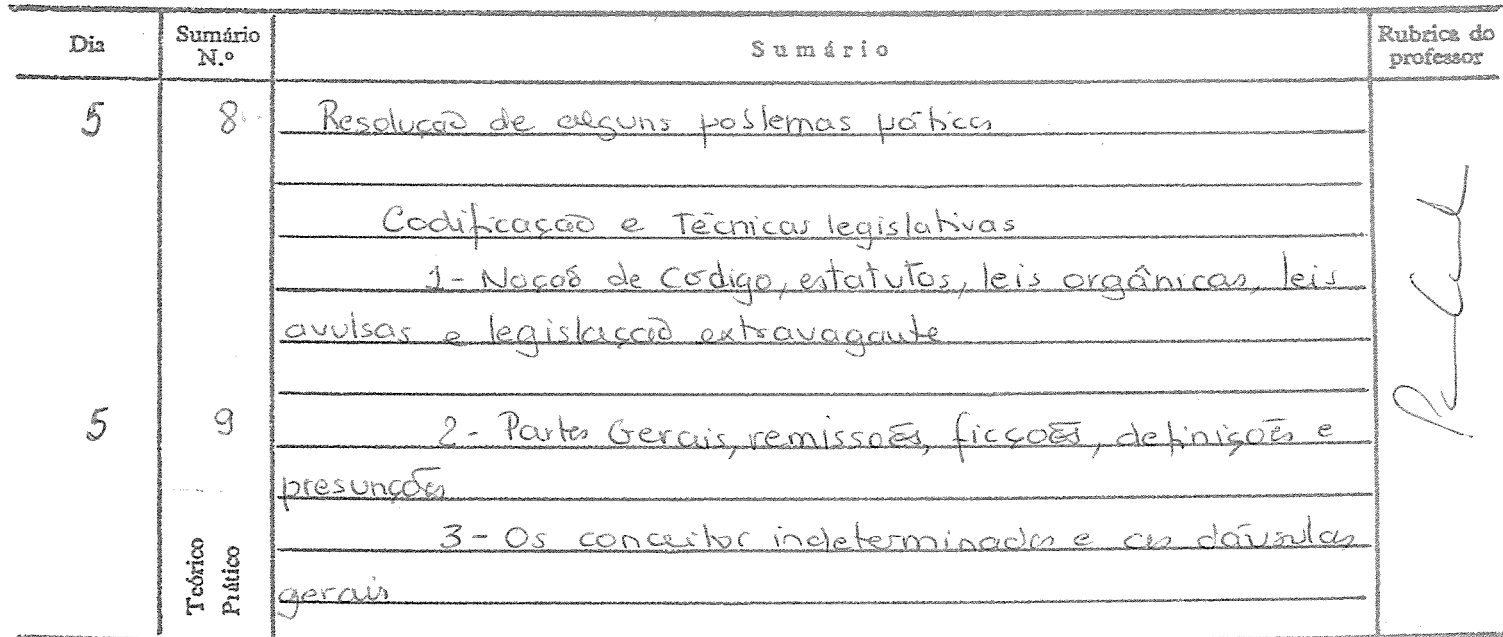 Dia Sumário N.º Sumário Rubrica do professor
5 8 Resolução de alguns problemas práticos
Codificação e Técnicas legislativas
1- Noções de Código, estatutos, leis orgânicas, leis
avulsas e legislação extravagante
5 9 2- Partes Gerais, remissões, ficções, definições e
presunções
3- Os conceitos indeterminados e as cláusulas
gerais
Teórico
Prático